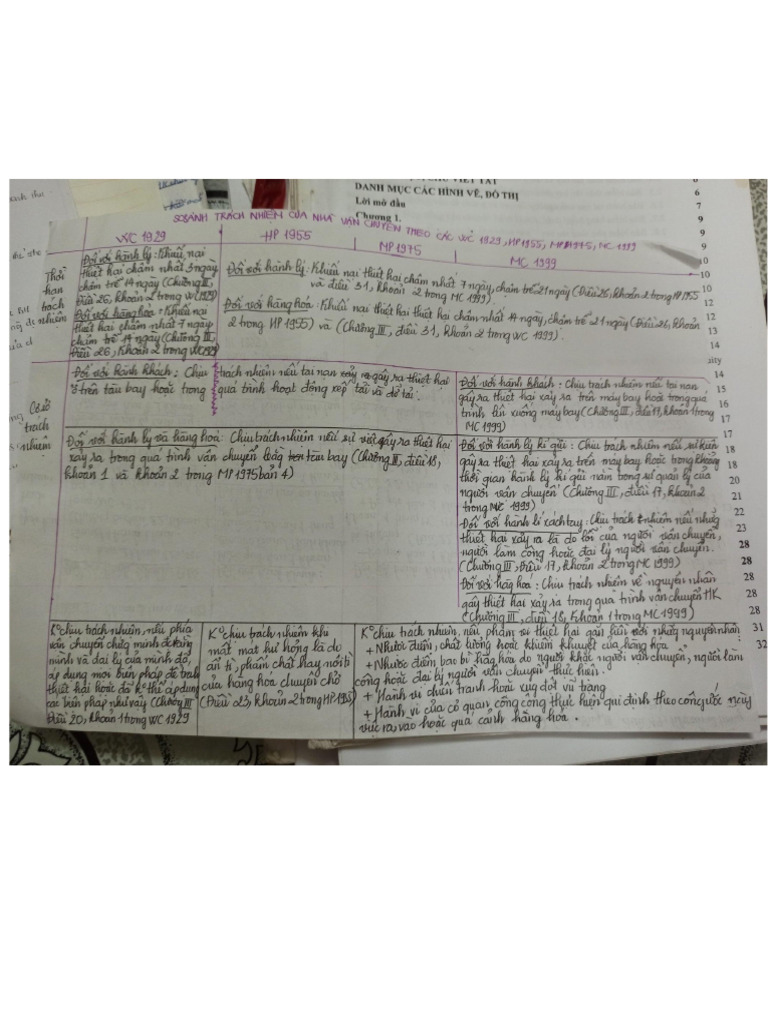 DANH MỤC CÁC HÌNH VẼ, ĐỒ THỊ
Lời mở đầu
Chương 1.
SO SÁNH TRÁCH NHIỆM CỦA NHÀ VẬN CHUYỂN THEO CÁC WC 1929, HP1955, MP1975, MC 1999
WC 1929
HP 1955
MP1975
MC 1999
Thời
hạn
trách
nhiệm
Đối với hành lý: Khiếu nại
thiệt hại chậm nhất 3 ngày
chậm trễ 14 ngày (Chương III,
Điều 26, khoản 2 trong WC1929)
Đối với hàng hóa: Khiếu nại
thiệt hại chậm nhất 7 ngày
chậm trễ 14 ngày (Chương III,
Điều 26, khoản 2 trong WC1929)
Đối với hành lý: Khiếu nại thiệt hại chậm nhất 7 ngày, chậm trễ 21 ngày (Điều 26, khoản 2 trong HP1955
và điều 31, khoản 2 trong MC 1999).
Đối với hàng hóa: Khiếu nại thiệt hại thiệt hại chậm nhất 14 ngày, chậm trễ 21 ngày (Điều 26, khoản
2 trong HP 1955) và (Chương III, điều 31, khoản 2 trong WC 1999).
Cơ sở
trách
nhiệm
Đối với hành khách: Chịu trách nhiệm nếu tai nạn xảy ra gây ra thiệt hại
ở trên tàu bay hoặc trong quá trình hoạt động xếp tải và dỡ tải.
Đối với hành khách: Chịu trách nhiệm nếu tai nạn
gây ra thiệt hại xảy ra trên máy bay hoặc trong quá
trình lên xuống máy bay (Chương III, điều 17, khoản 1 trong
MC 1999)
Đối với hành lý và hàng hóa: Chịu trách nhiệm nếu sự việc gây ra thiệt hại
xảy ra trong quá trình vận chuyển bằng tàu bay (Chương III, điều 18,
khoản 1 và khoản 2 trong MP1975 bản 4)
Đối với hành lý kí gửi: Chịu trách nhiệm nếu sự kiện
gây ra thiệt hại xảy ra trên máy bay hoặc trong khoảng
thời gian hành lý kí gửi nằm trong sự quản lý của
người vận chuyển (Chương III, điều 17, khoản 2
trong MC 1999)
Đối với hành lí xách tay: Chịu trách nhiệm nếu những
thiệt hại xảy ra là do lỗi của người vận chuyển,
người làm công hoặc đại lý người vận chuyển.
(Chương III, Điều 17, khoản 2 trong MC 1999)
Đối với hàng hoá: Chịu trách nhiệm về nguyên nhân
gây thiệt hại xảy ra trong quá trình vận chuyển HK
(Chương III, điều 18, khoản 1 trong MC 1999)
K° chịu trách nhiệm, nếu phía
vận chuyển chứng minh được rằng
mình và đại lý của mình đã,
áp dụng mọi biện pháp để tránh
thiệt hại hoặc đã k° thể áp dụng
các biện pháp như vậy (Chương III
Điều 20, khoản 1 trong WC 1929
K° chịu trách nhiệm khi
mất mát hư hỏng là do
ẩn tì, phẩm chất hay nội tì
của hàng hóa chuyên chở
(Điều 23, khoản 2 trong HP 1955)
K° chịu trách nhiệm, nếu phạm vi thiệt hại gắn liền với những nguyên nhân
+ Nhược điểm, chất lượng hoặc khiếm khuyết của hàng hóa
+ Nhược điểm bao bì hàng hóa do người khác người vận chuyển, người làm
công hoặc đại lý người vận chuyển thực hiện.
+ Hành vi chiến tranh hoặc xung đột vũ trang
+ Hành vi của cơ quan công cộng thực hiện qui định theo công ước này
vực ra, vào hoặc quá cảnh hàng hóa.
6
7
9
9
9
9
0
10
10
12
13
14
14
15
16
17
17
18
18
20
21
22
23
28
28
28
28
31
32